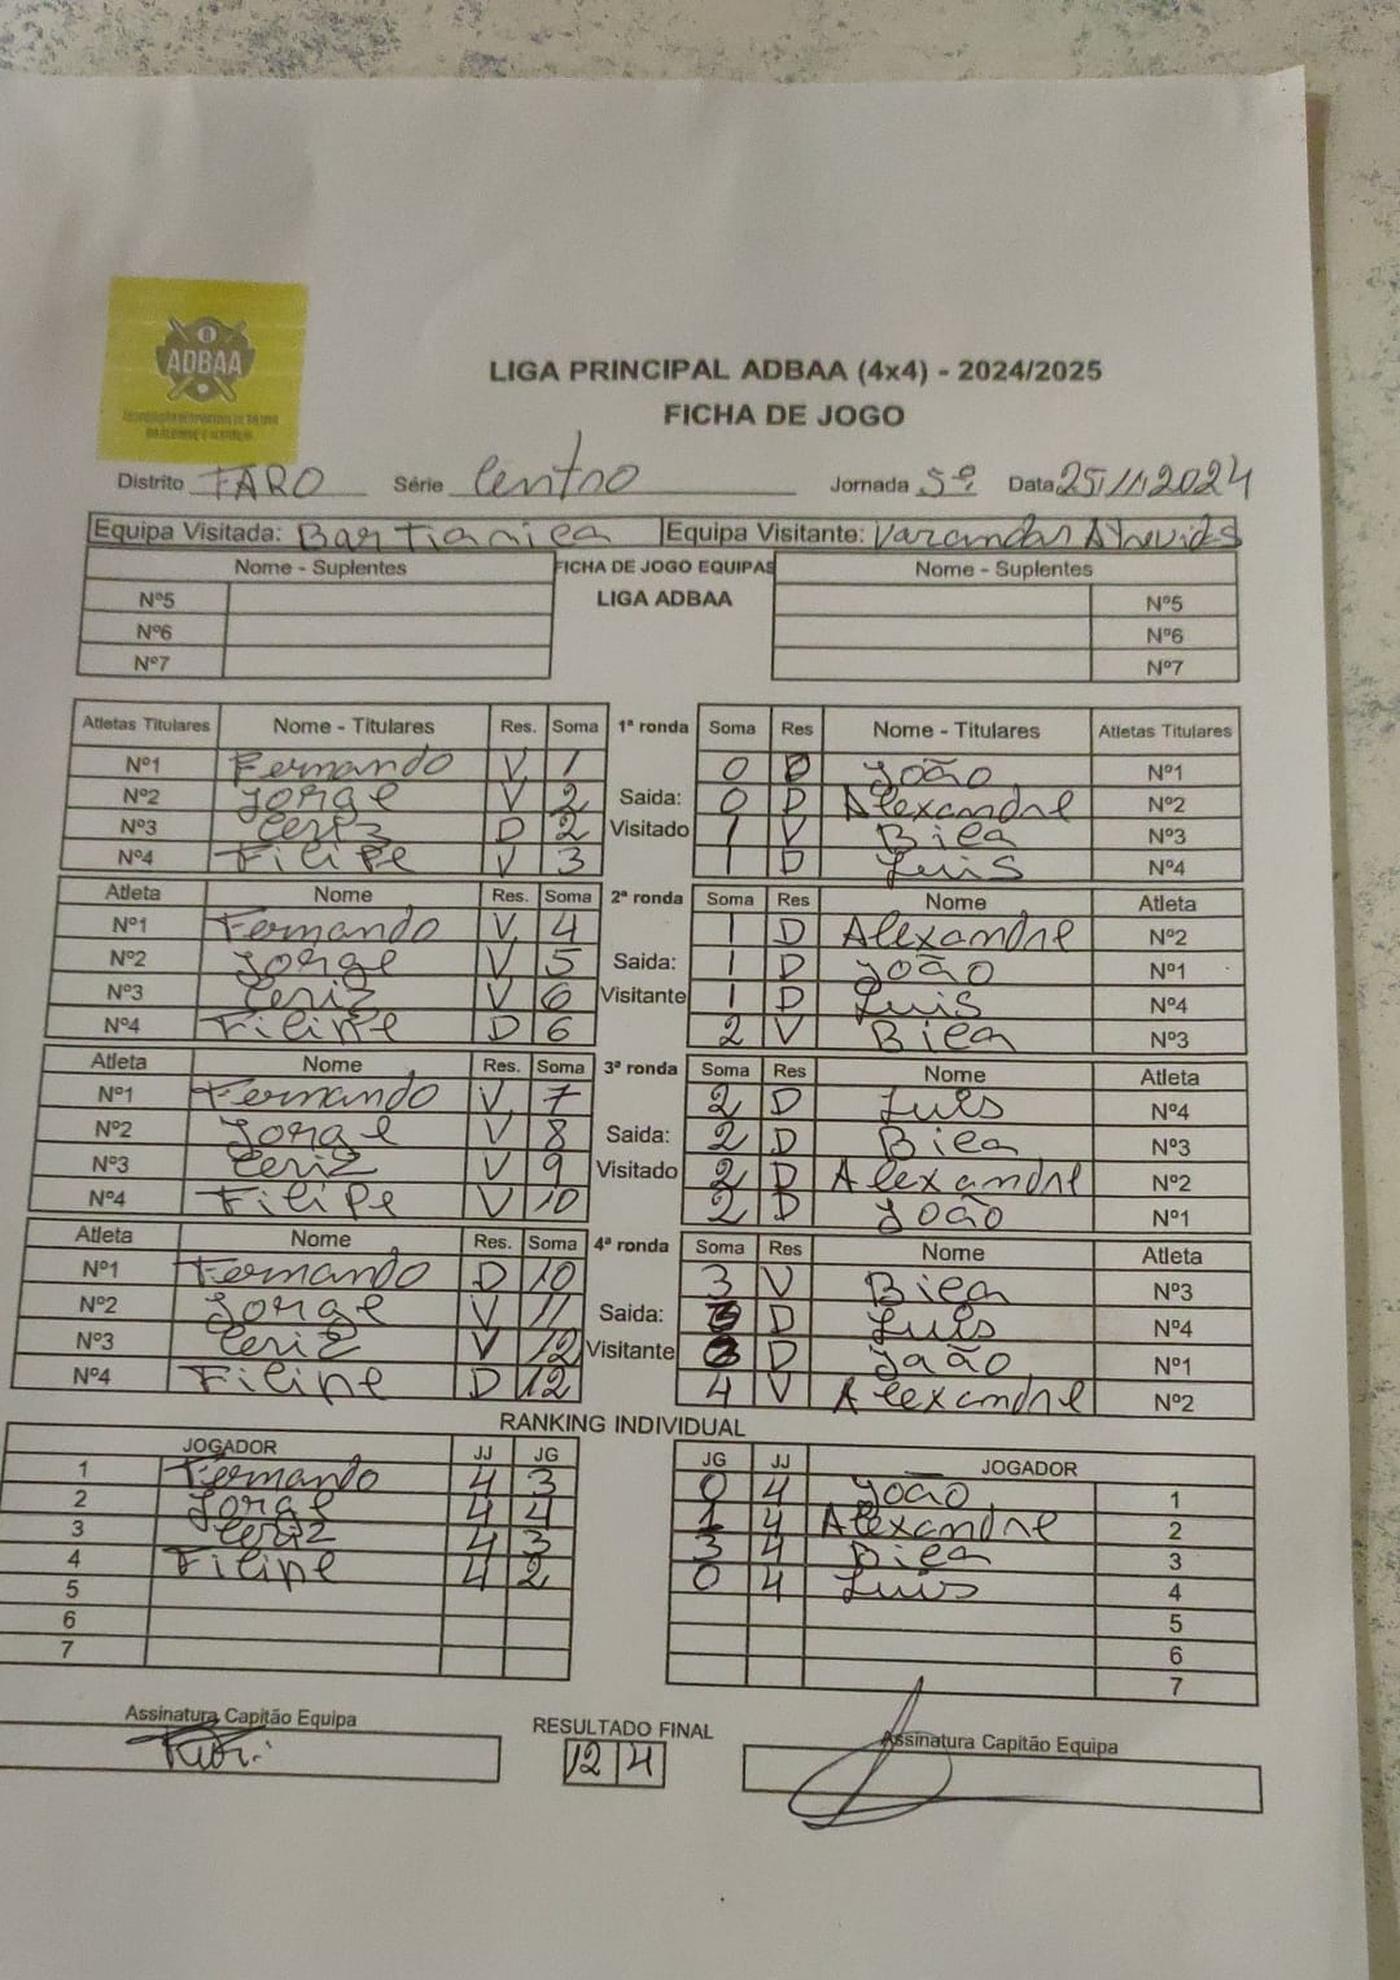 ADBAA
LIGA PRINCIPAL ADBAA (4x4) - 2024/2025
FICHA DE JOGO
Distrito FARO Série Centro Jornada 5ª Data 25/11/2024
Equipa Visitada: Bartianica Equipa Visitante: Varandas Atrevidas
Nome - Suplentes FICHA DE JOGO EQUIPAS Nome - Suplentes
Nº5 LIGA ADBAA Nº5
Nº6 Nº6
Nº7 Nº7
Atletas Titulares Nome - Titulares Res. Soma 1ª ronda Soma Res Nome - Titulares Atletas Titulares
Nº1 Fernando V 1 0 D João Nº1
Nº2 Jorge V 2 Saida: 0 D Alexandre Nº2
Nº3 Ceriz D 2 Visitado 1 V Biea Nº3
Nº4 Filipe V 3 1 D Luis Nº4
Atleta Nome Res. Soma 2ª ronda Soma Res Nome Atleta
Nº1 Fernando V 4 1 D Alexandre Nº2
Nº2 Jorge V 5 Saida: 1 D João Nº1
Nº3 Ceriz V 6 Visitante 1 D Luis Nº4
Nº4 Filipe D 6 2 V Biea Nº3
Atleta Nome Res. Soma 3ª ronda Soma Res Nome Atleta
Nº1 Fernando V 7 2 D Luis Nº4
Nº2 Jorge V 8 Saida: 2 D Biea Nº3
Nº3 Ceriz V 9 Visitado 2 D Alexandre Nº2
Nº4 Filipe V 10 2 D João Nº1
Atleta Nome Res. Soma 4ª ronda Soma Res Nome Atleta
Nº1 Fernando D 10 3 V Biea Nº3
Nº2 Jorge V 11 Saida: 3 D Luis Nº4
Nº3 Ceriz V 12 Visitante 3 D Jaão Nº1
Nº4 Filipe D 12 4 V Alexandre Nº2
RANKING INDIVIDUAL
JOGADOR JJ JG JG JJ JOGADOR
1 Fernando 4 3 0 4 João 1
2 Jorge 4 4 1 4 Alexandre 2
3 Ceriz 4 3 3 4 Biea 3
4 Filipe 4 2 0 4 Luis 4
5 5
6 6
7 7
Assinatura Capitão Equipa RESULTADO FINAL Assinatura Capitão Equipa
12 4